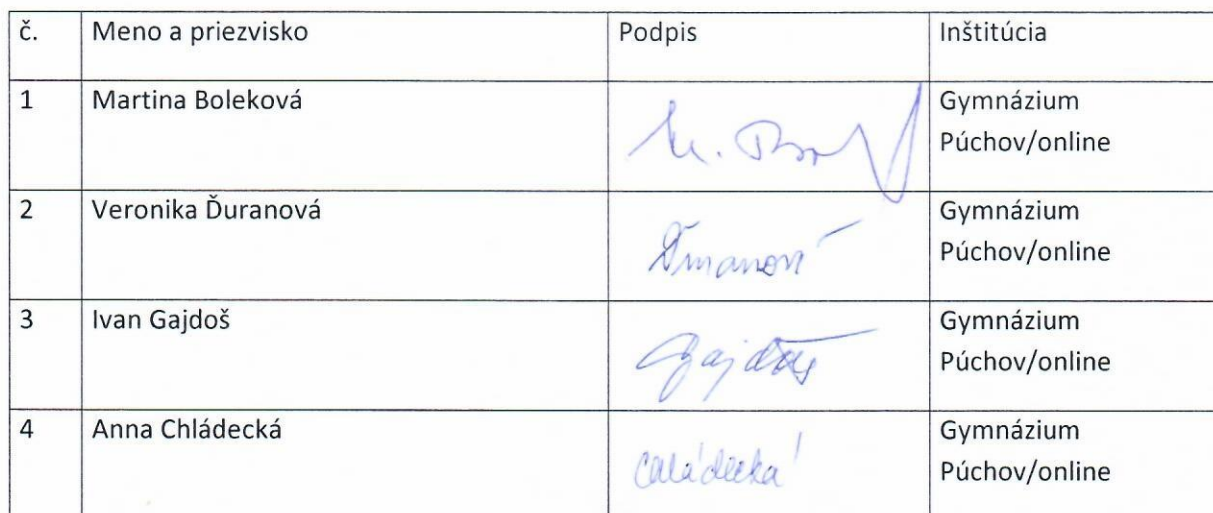 č. Meno a priezvisko Podpis Inštitúcia
1 Martina Boleková M. Bol Gymnázium
Púchov/online
2 Veronika Ďuranová Ďuranová Gymnázium
Púchov/online
3 Ivan Gajdoš Gajdoš Gymnázium
Púchov/online
4 Anna Chládecká Chládecká Gymnázium
Púchov/online